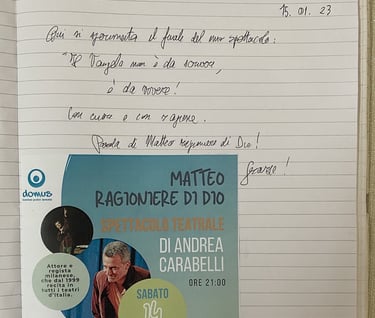 15.01.23
Qui si sperimenta il finale del mio spettacolo:
"Il Vangelo non è da scrivere,
è da vivere!
Con cuore e con ragione.
Parola di Matteo ragioniere di Dio!
Grazie!
domus
MATTEO
RAGIONIERE DI DIO
SPETTACOLO TEATRALE
DI ANDREA
CARABELLI
ORE 21:00
Attore e
regista
milanese,
che dal 1999
recita in
tutti i teatri
d'Italia.
SABATO
14